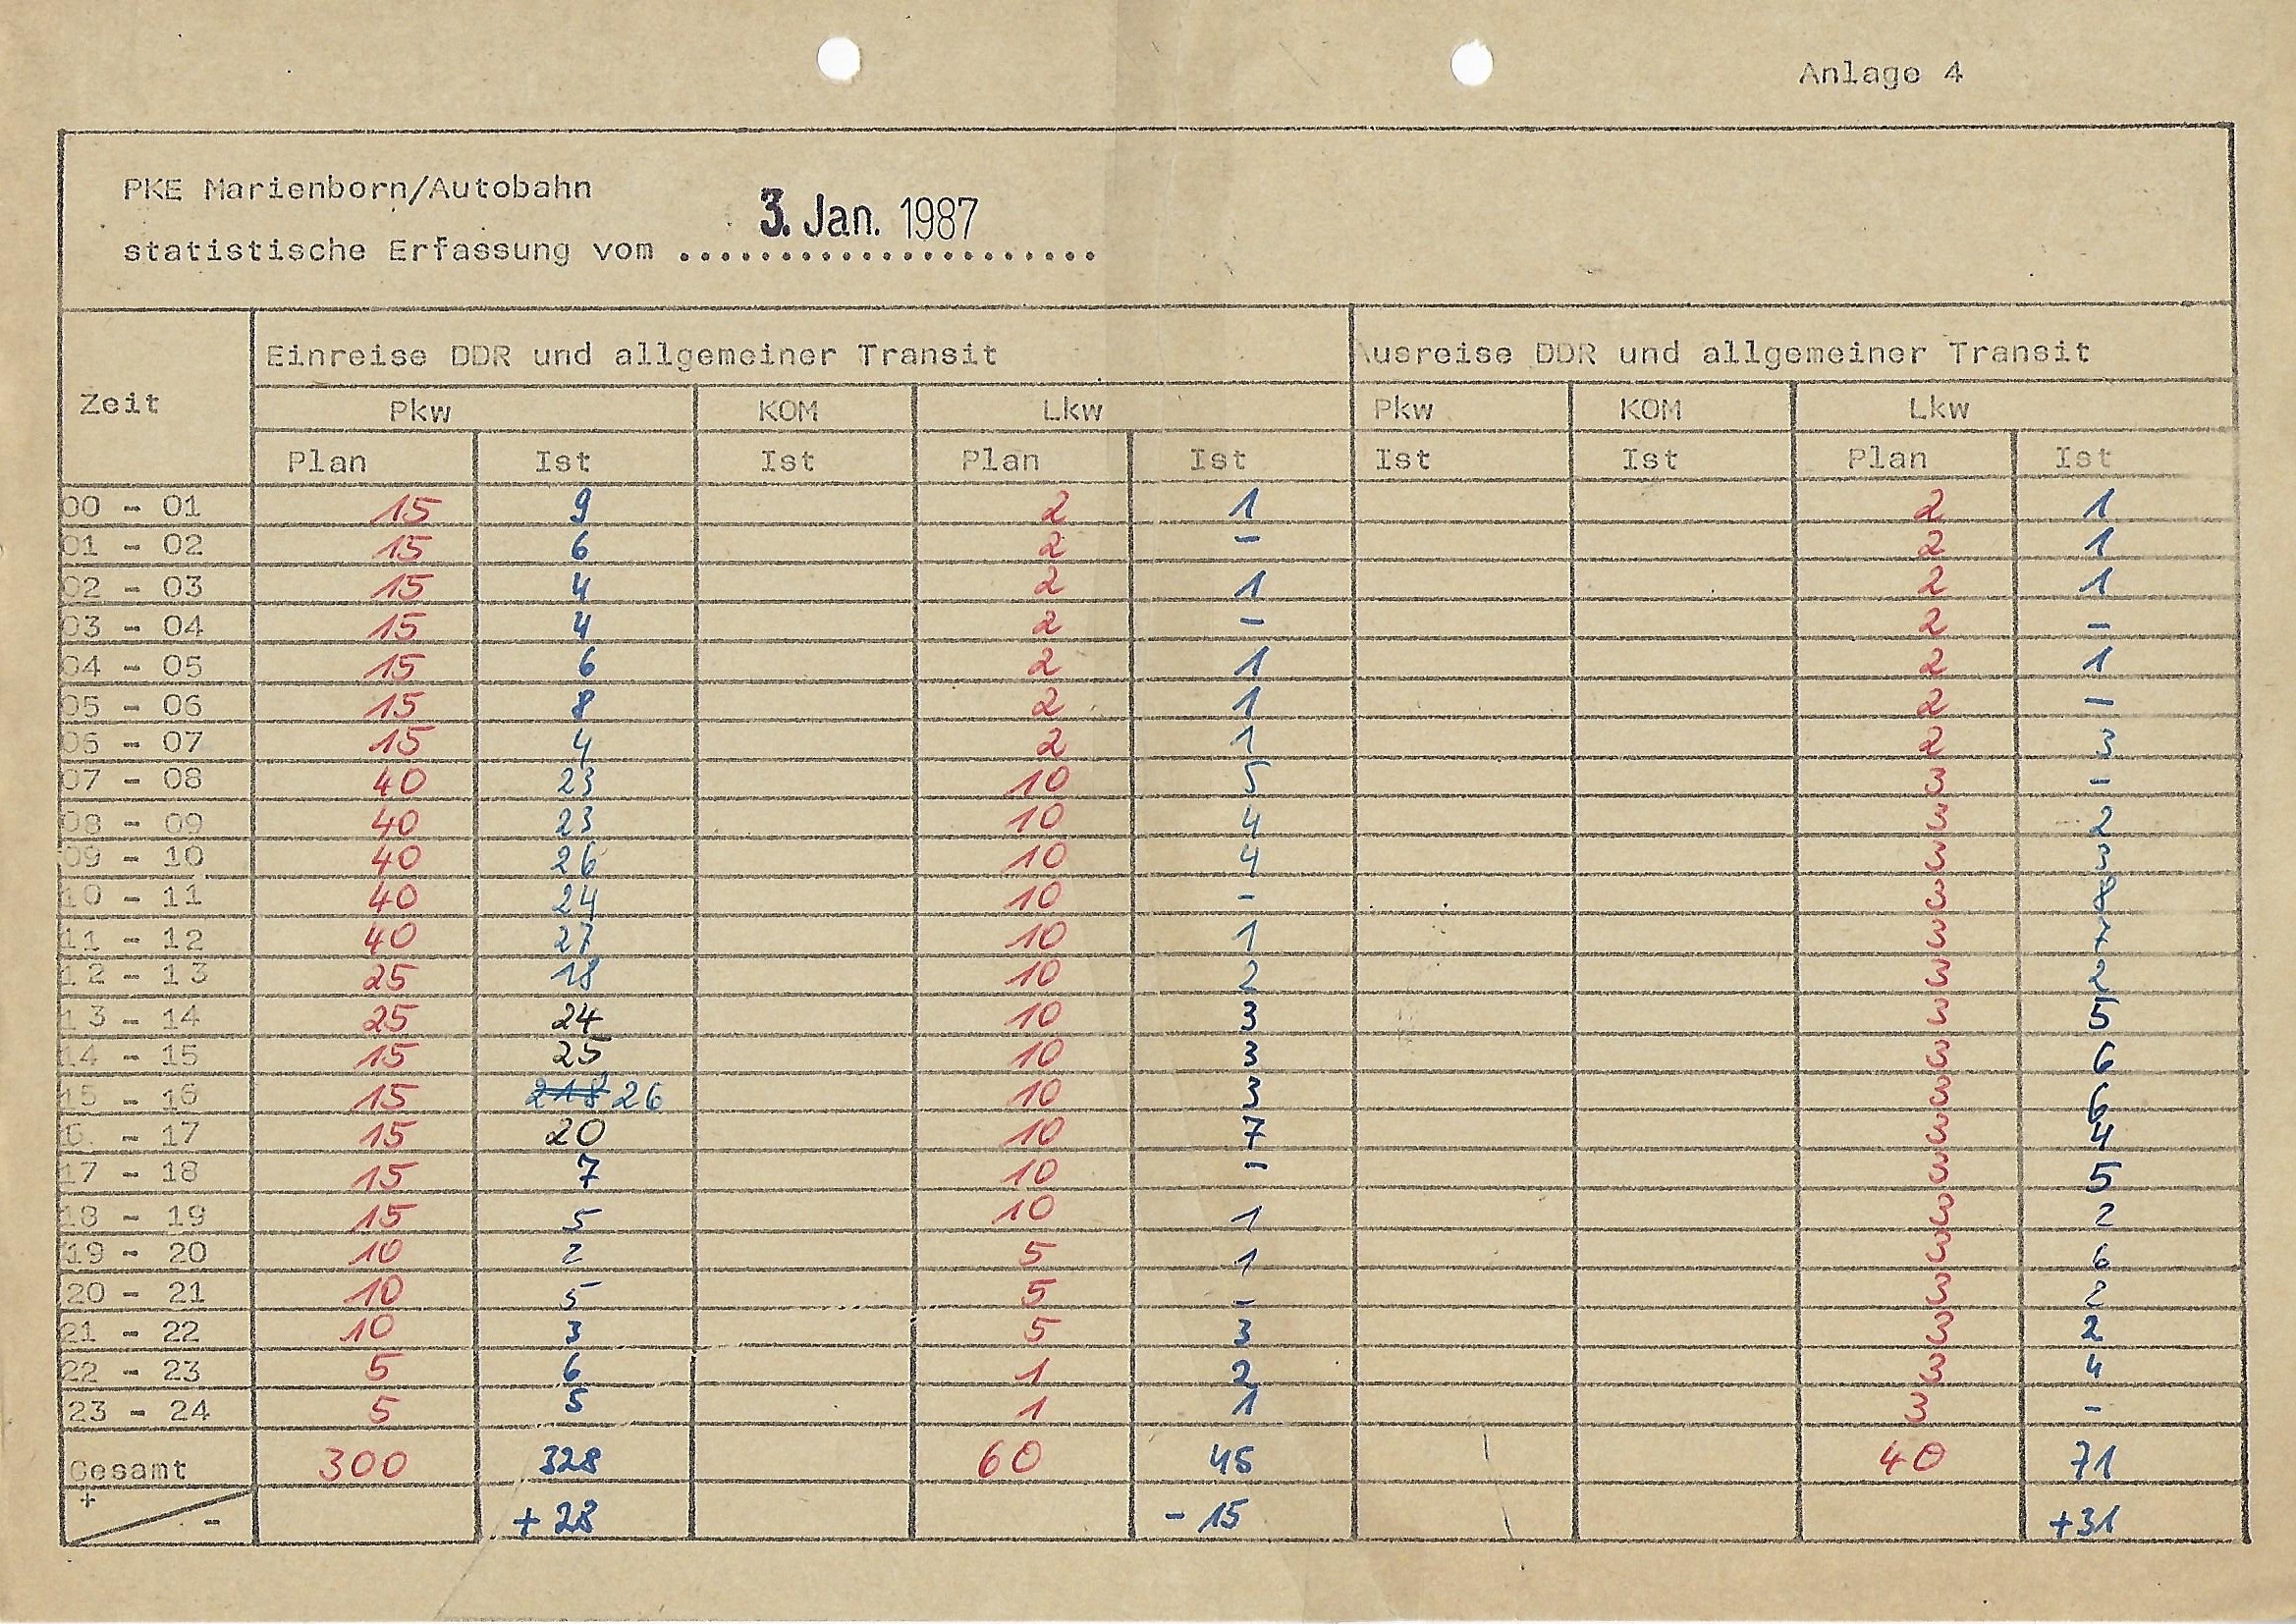 Anlage 4
PKE Marienborn/Autobahn
3. Jan. 1987
statistische Erfassung vom .....................
Zeit Einreise DDR und allgemeiner Transit Ausreise DDR und allgemeiner Transit
Pkw KOM Lkw Pkw KOM Lkw
Plan Ist Ist Plan Ist Ist Ist Plan Ist
00 - 01 15 9 2 1 2 1
01 - 02 15 6 2 - 2 1
02 - 03 15 4 2 1 2 1
03 - 04 15 4 2 - 2 -
04 - 05 15 6 2 1 2 1
05 - 06 15 8 2 1 2 -
06 - 07 15 4 2 1 2 3
07 - 08 40 23 10 5 3 -
08 - 09 40 23 10 4 3 2
09 - 10 40 26 10 4 3 3
10 - 11 40 24 10 - 3 8
11 - 12 40 27 10 1 3 7
12 - 13 25 18 10 2 3 2
13 - 14 25 24 10 3 3 5
14 - 15 15 25 10 3 3 6
15 - 16 15 218 26 10 3 3 6
16 - 17 15 20 10 7 3 4
17 - 18 15 7 10 - 3 5
18 - 19 15 5 10 1 3 2
19 - 20 10 2 5 1 3 6
20 - 21 10 5 5 - 3 2
21 - 22 10 3 5 3 3 2
22 - 23 5 6 1 2 3 4
23 - 24 5 5 1 1 3 -
Gesamt 300 328 60 45 40 71
+ - + 28 - 15 +31